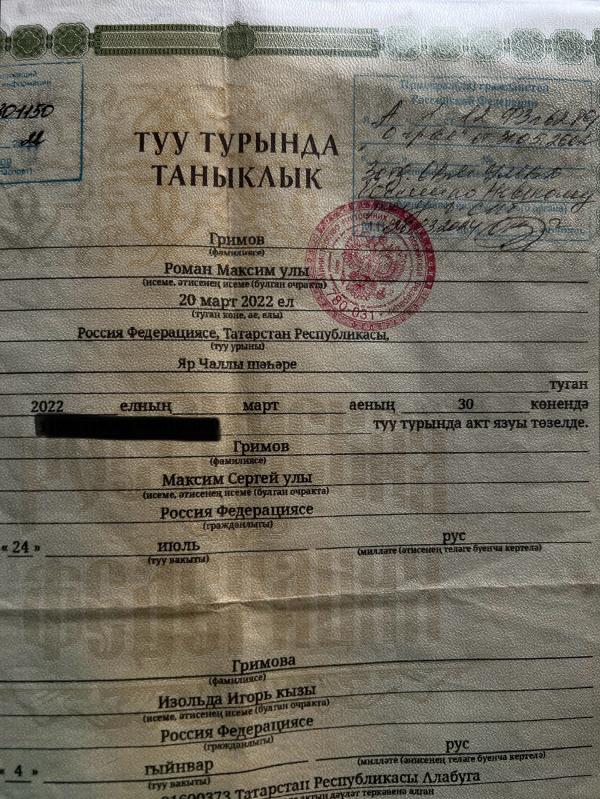 ТУУ ТУРЫНДА
ТАНЫКЛЫК
Российской Федерации
Гримов
(фамилиясе)
Роман Максим улы
(исеме, әтисенең исеме (булган очракта)
20 март 2022 ел
(туган көне, ае, елы)
Россия Федерациясе, Татарстан Республикасы,
(туу урыны)
Яр Чаллы шәһәре
туган
2022 елның март аеның 30 көнендә
туу турында акт язуы төзелде.
Гримов
(фамилиясе)
Максим Сергей улы
(исеме, әтисенең исеме (булган очракта)
Россия Федерациясе
(гражданлыгы)
« 24 » июль рус
(туу вакыты) (милләте (әтисенең теләге буенча кертелә)
Гримова
(фамилиясе)
Изольда Игорь кызы
(исеме, әтисенең исеме (булган очракта)
Россия Федерациясе
(гражданлыгы)
« 4 » гыйнвар рус
(туу вакыты) (милләте (әнисенең теләге буенча кертелә)
01600373 Татарстан Республикасы Алабуга
780-031